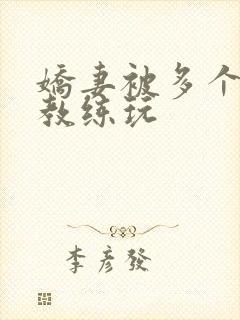 娇妻被多个
教练玩
李彦發